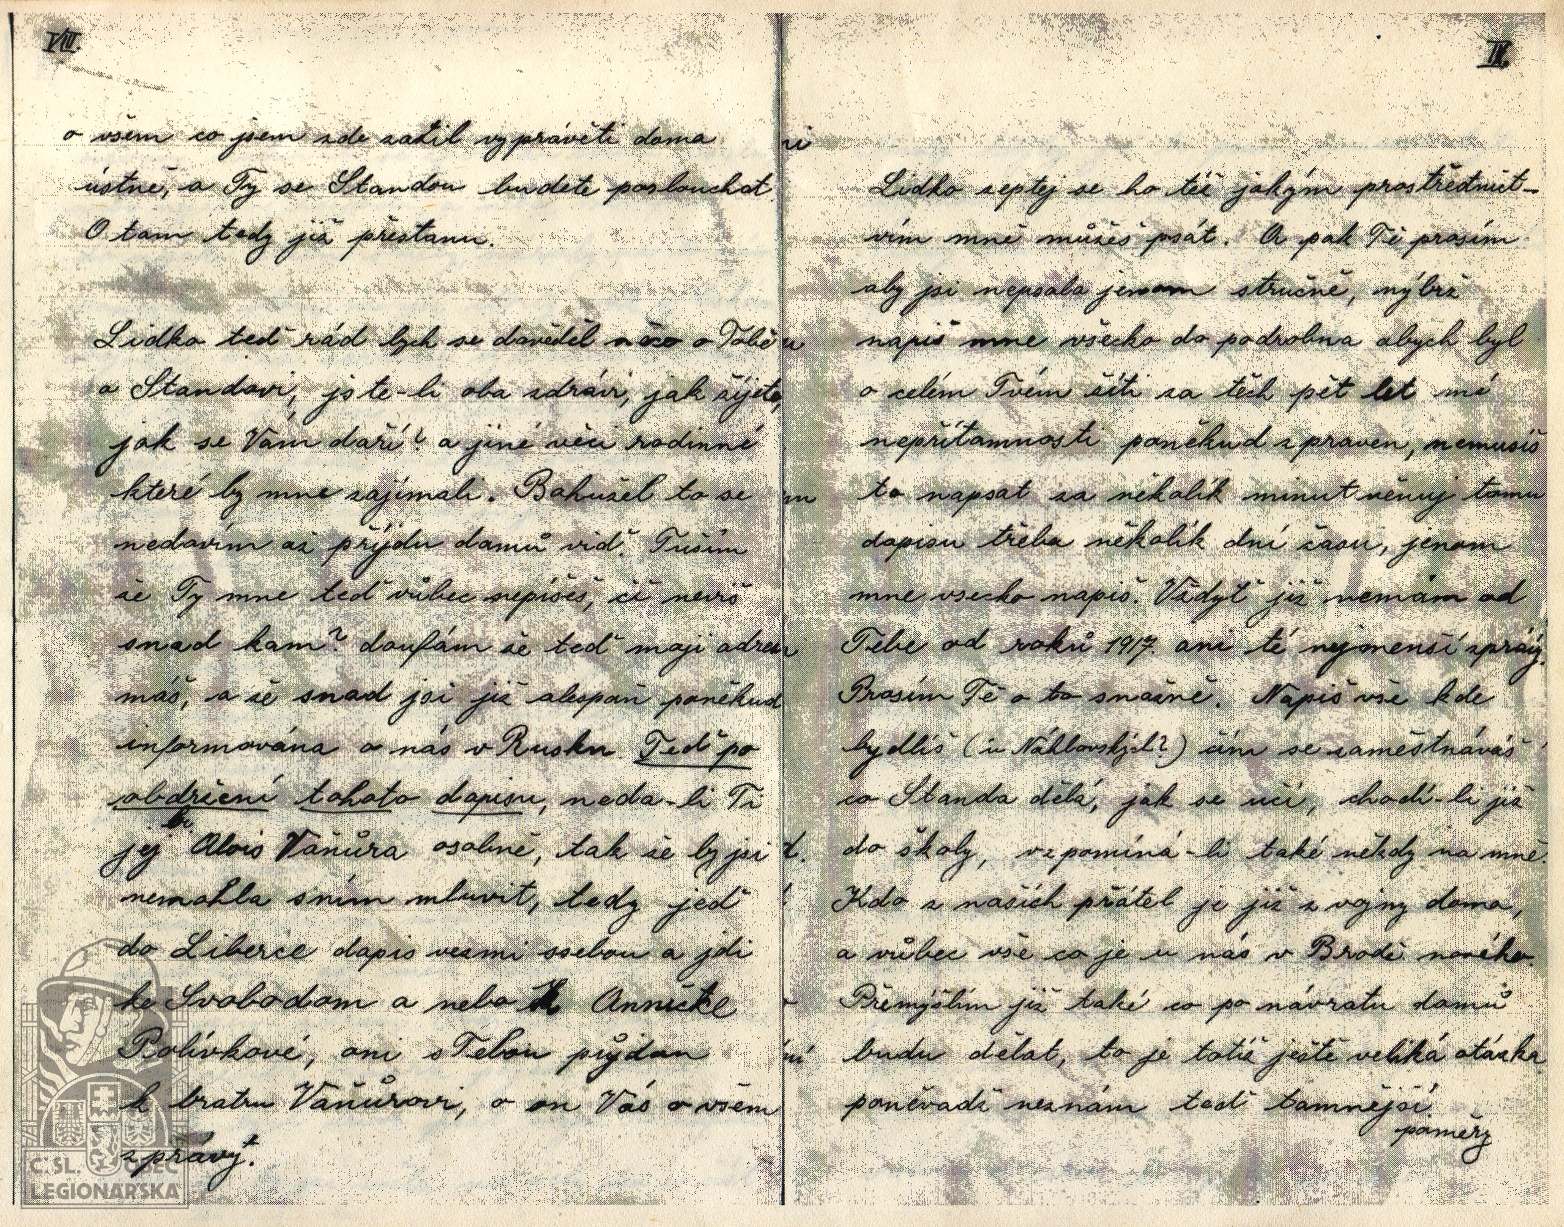 VIII.
o všem co jsem zde zažil vyprávěti doma
ústně, a Ty se Standou budete poslouchat.
O tom tedy již přestanu.
Lidko teď rád bych se dověděl něco o Tobě
o Standovi, jste-li oba zdrávi, jak žijete,
jak se Vám daří? a jiné věci rodinné
které by mne zajímali. Bohužel to se
nedovím až přijdu domů viď. Tuším
že Ty mne teď vůbec nepíšeš, či nevíš
snad kam? doufám že teď moji adresu
máš, a že snad jsi již alespoň poněkud
informována o nás v Rusku. Teď po
obdržení tohoto dopisu, nedá-li Ti
jej br. Alois Vaňůra osobně, tak že by jsi
nemohla sním mluvit, tedy jeď
do Liberce dopis vezmi ssebou a jdi
ke Svobodom a nebo k Anničke
Polívkové, oni s Tebou půjdou
k bratru Vaňůrovi, a on Vás o všem
zpraví.
IX.
Lidko zeptej se ho též jakým prostřednict-
vím mně můžeš psát. A pak Tě prosím
aby jsi nepsala jenom stručně, nýbrž
napiš mne všecko do podrobna abych byl
o celém Tvém žití za těch pět let mé
nepřítomnosti poněkud zpraven, nemusíš
to napsat za několik minut věnuj tomu
dopisu třeba několik dní času, jenom
mne všecko napiš. Vždyť již nemám od
Tebe od roků 1917. ani té nejmenší zprávy.
Prosím Tě o to snažně. Napiš vše kde
bydlíš (u Náhlovských?) čím se zaměstnáváš
co Standa dělá, jak se učí, chodí-li již
do školy, vzpomíná-li také někdy na mně.
Kdo z našich přátel je již z vojny doma,
a vůbec vše co je u nás v Brodě nového.
Přemýšlím již také co po návratu domů
budu dělat, to je totiž ještě veliká otázka
poněvadž neznám teď tamnější
poměry
Č. SL. OBEC
LEGIONÁŘSKÁ